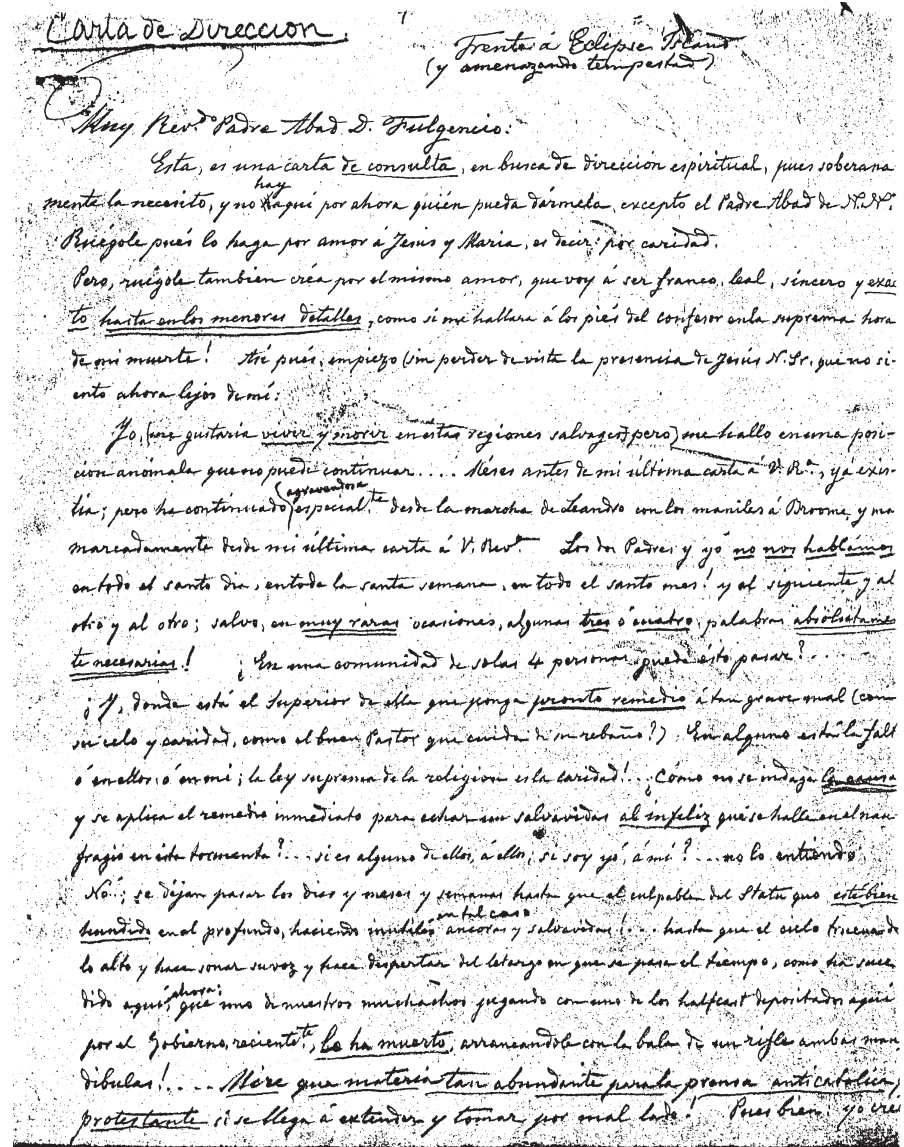 Carta de Direccion.
Frente á Eclipse Island
(y amenazando tempestad)
Muy Rev.do Padre Abad D. Fulgencio:
Esta, es una carta de consulta, en busca de direccion espiritual, pues soberana
mente la necesito, y no hay aqui por ahora quién pueda dármela, excepto el Padre Abad de N. N.a
Ruégole pués lo haga por amor á Jesus y Maria, es decir: por caridad.
Pero, ruégole tambien créa por el mismo amor, que voy á ser franco, leal, sincero y exac
to hasta en los menores detalles, como si me hallara á los piés del confesor en la suprema hora
de mi muerte! Asi pués, empiezo (sin perder de vista la presencia de Jesús N. Sr. que no si-
ento ahora lejos de mi:
Yo, (me gustaría vivir y morir en estas regiones salvages, pero) me hallo en una posi-
cion anómala que no puede continuar.... Méses antes de mi última carta á V. R.a, yá exis-
tía; pero ha continuado (agravandose especial.te desde la marcha de Leandro con los maniles á Broome, y ma
marcadamente desde mi última carta á V. Rev.a Los dos Padres y yó no nos hablámos
en todo el santo dia, en toda la santa semana, en todo el santo mes! y al siguiente y al
otro y al otro; salvo, en muy raras ocasiones, algunas tres ó cuatro palabras absolutamen
te necesarias! ¿En una comunidad de solas 4 personas puede ésto pasar?....
¿Y, donde está el Superior de ella que ponga pronto remedio á tan grave mal (con
su celo y caridad, como el buen Pastor que cuida de su rebaño?). En alguno está la falt
ó en ellos, ó en mi; la ley suprema de la religion es la caridad!... ¿Cómo no se indaga la causa
y se aplica el remedio inmediato para echar un salvavidas al infeliz que se halle en el nau
fragio en ésta tormenta?... si es alguno de ellos, á ellos; si soy yó, á mí?... no lo entiendo
Nó; se déjan pasar los dias y meses y semanas hasta que el culpable del Statu quo esté bien
hundido en el profundo, haciendo inutiles en tal caso áncoras y salvavidas!... hasta que el cielo truena de
lo alto y hace sonar su voz y hace despertar del letargo en que se pasa el tiempo, como ha suce
dido aqui, ahora; que uno de nuestros muchachos jugando con uno de los halfcast depositados aqui
por el Gobierno, reciente.te, lo ha muerto, arrancandole con la bala de un rifle ambas man
dibulas!.... Mire que materia tan abundante para la prensa anticatolica,
protestante si se llega á extender y tomar por mal lado! Pues bien: yo creí